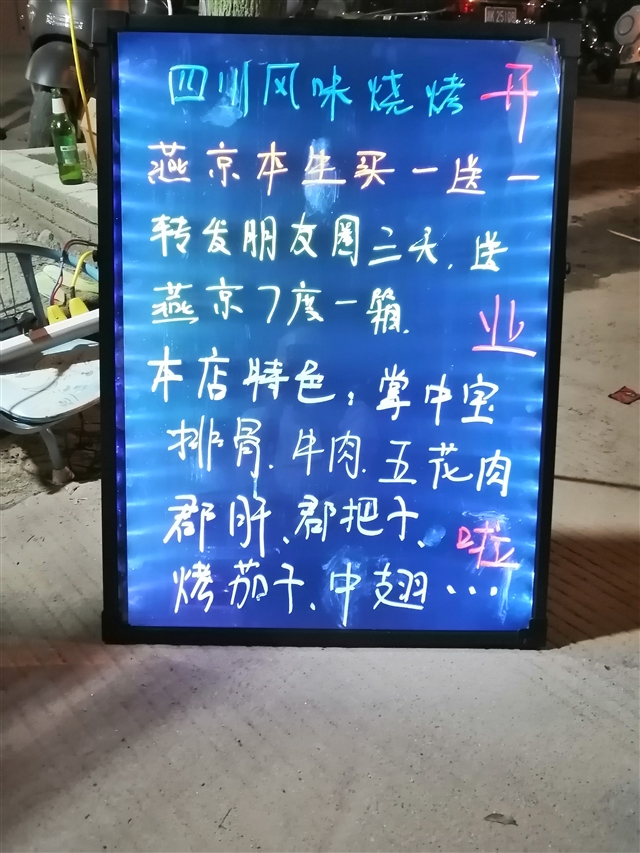 四川风味烧烤
燕京本生买一送一
转发朋友圈三天.送
燕京7度一箱.
本店特色：掌中宝
排骨.牛肉.五花肉
郡肝、郡把子、
烤茄子、中翅…
开
业
啦